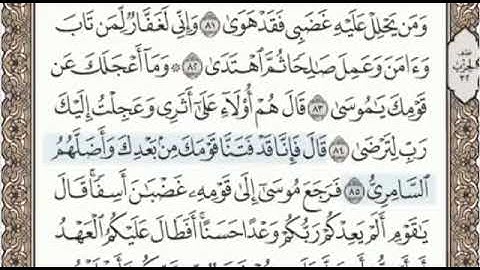 وَمَن يَحْلِلْ عَلَيْهِ غَضَبِى فَقَدْ هَوَىٰ ٨١ وَإِنِّى لَغَفَّارٌ لِّمَن تَابَ
وَءَامَنَ وَعَمِلَ صَٰلِحًا ثُمَّ ٱهْتَدَىٰ ٨٢ ۞ وَمَآ أَعْجَلَكَ عَن
قَوْمِكَ يَٰمُوسَىٰ ٨٣ قَالَ هُمْ أُو۟لَآءِ عَلَىٰٓ أَثَرِى وَعَجِلْتُ إِلَيْكَ
رَبِّ لِتَرْضَىٰ ٨٤ قَالَ فَإِنَّا قَدْ فَتَنَّا قَوْمَكَ مِنۢ بَعْدِكَ وَأَضَلَّهُمُ
ٱلسَّامِرِىُّ ٨٥ فَرَجَعَ مُوسَىٰٓ إِلَىٰ قَوْمِهِۦ غَضْبَٰنَ أَسِفًا ۚ قَالَ
يَٰقَوْمِ أَلَمْ يَعِدْكُمْ رَبُّكُمْ وَعْدًا حَسَنًا ۚ أَفَطَالَ عَلَيْكُمُ ٱلْعَهْدُ
الحزب
٣٢